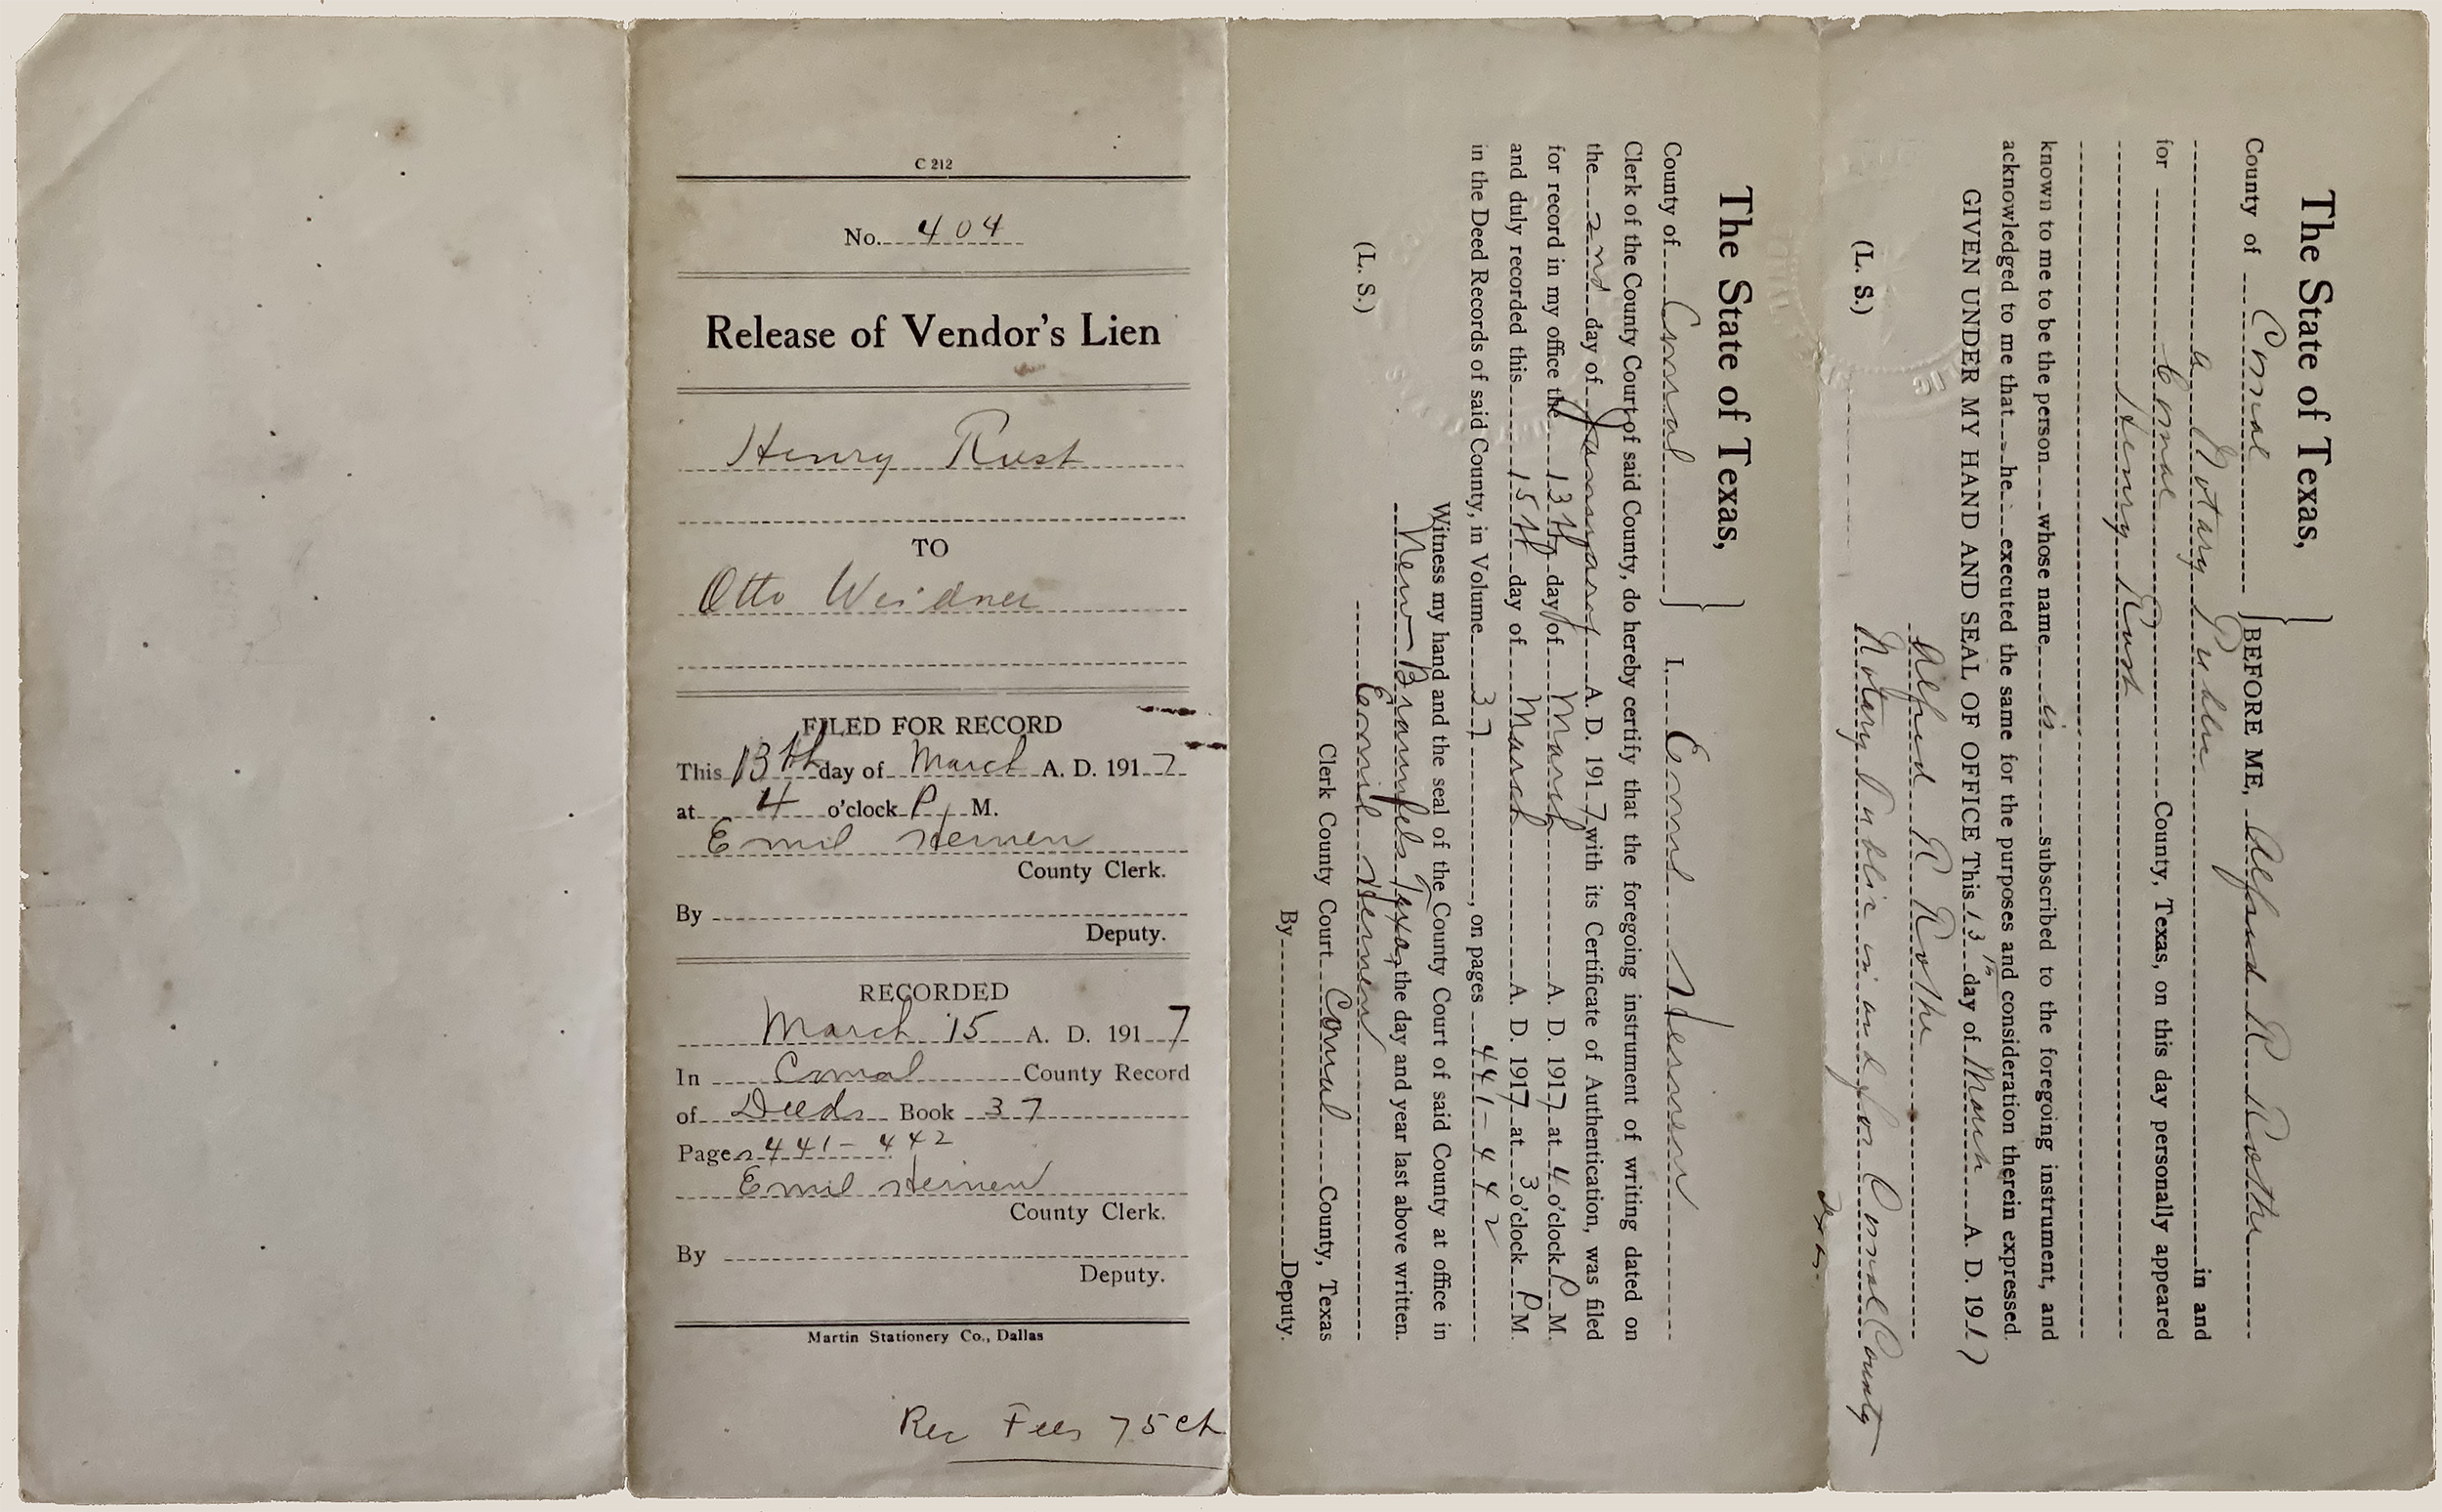 C 212
No. 404
Release of Vendor's Lien
Henry Rust
TO
Otto Weidner
FILED FOR RECORD
This 13th day of March A. D. 1917
at 4 o'clock P. M.
Emil Heinen
County Clerk.
By
Deputy.
RECORDED
March 15 A. D. 1917
In Comal County Record
of Deeds Book 37
Pages 441-442
Emil Heinen
County Clerk.
By
Deputy.
Martin Stationery Co., Dallas
Rec Fees 75 ct
The State of Texas,
County of Comal } I, Emil Heinen
Clerk of the County Court of said County, do hereby certify that the foregoing instrument of writing dated on
the 2nd day of January A. D. 1917 with its Certificate of Authentication, was filed
for record in my office the 13th day of March A. D. 1917 at 4 o'clock P M.
and duly recorded this 15th day of March A. D. 1917 at 3 o'clock P M.
in the Deed Records of said County, in Volume 37, on pages 441-442
Witness my hand and the seal of the County Court of said County at office in
New Braunfels Texas the day and year last above written.
(L. S.) Emil Heinen
Clerk County Court Comal County, Texas
By Deputy.
The State of Texas,
County of Comal } BEFORE ME, Alfred R Rothe
a Notary Public in and
for Comal County, Texas, on this day personally appeared
Henry Rust
known to me to be the person whose name is subscribed to the foregoing instrument, and
acknowledged to me that he executed the same for the purposes and consideration therein expressed.
GIVEN UNDER MY HAND AND SEAL OF OFFICE This 13th day of March A. D. 1917
Alfred R Rothe
(L. S.) Notary Public in and for Comal County